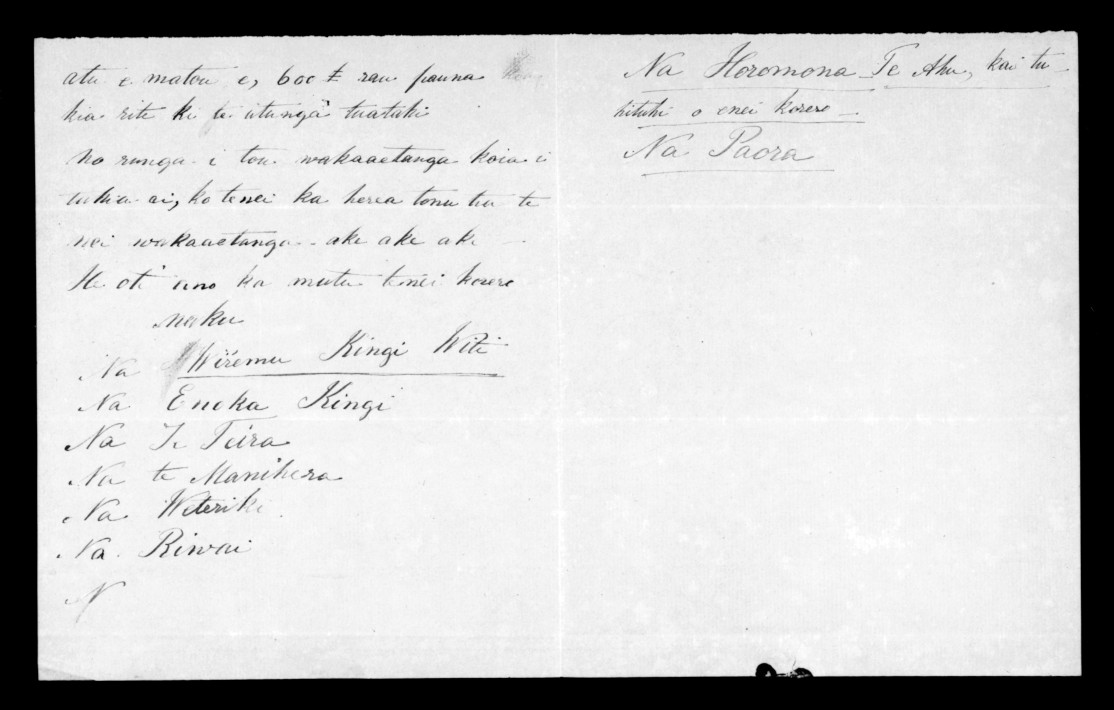 atu e matou e, 600 £ rau pauna
kia rite ki te utunga tuatahi
No runga i tou wakaaetanga koia i
tukia ai, ko tenei ka herea tonutia te
nei wakaaetanga - ake ake ake -
He oti ano ka mutu tenei korero
naku
Na Wiremu Kingi Witi
Na Enoka Kingi
Na Te Teira
Na te Manihera
Na Weteriki
Na Riwai
N
Na Horomona Te Ahu, kai tu-
hituhi o enei korero -
Na Paora